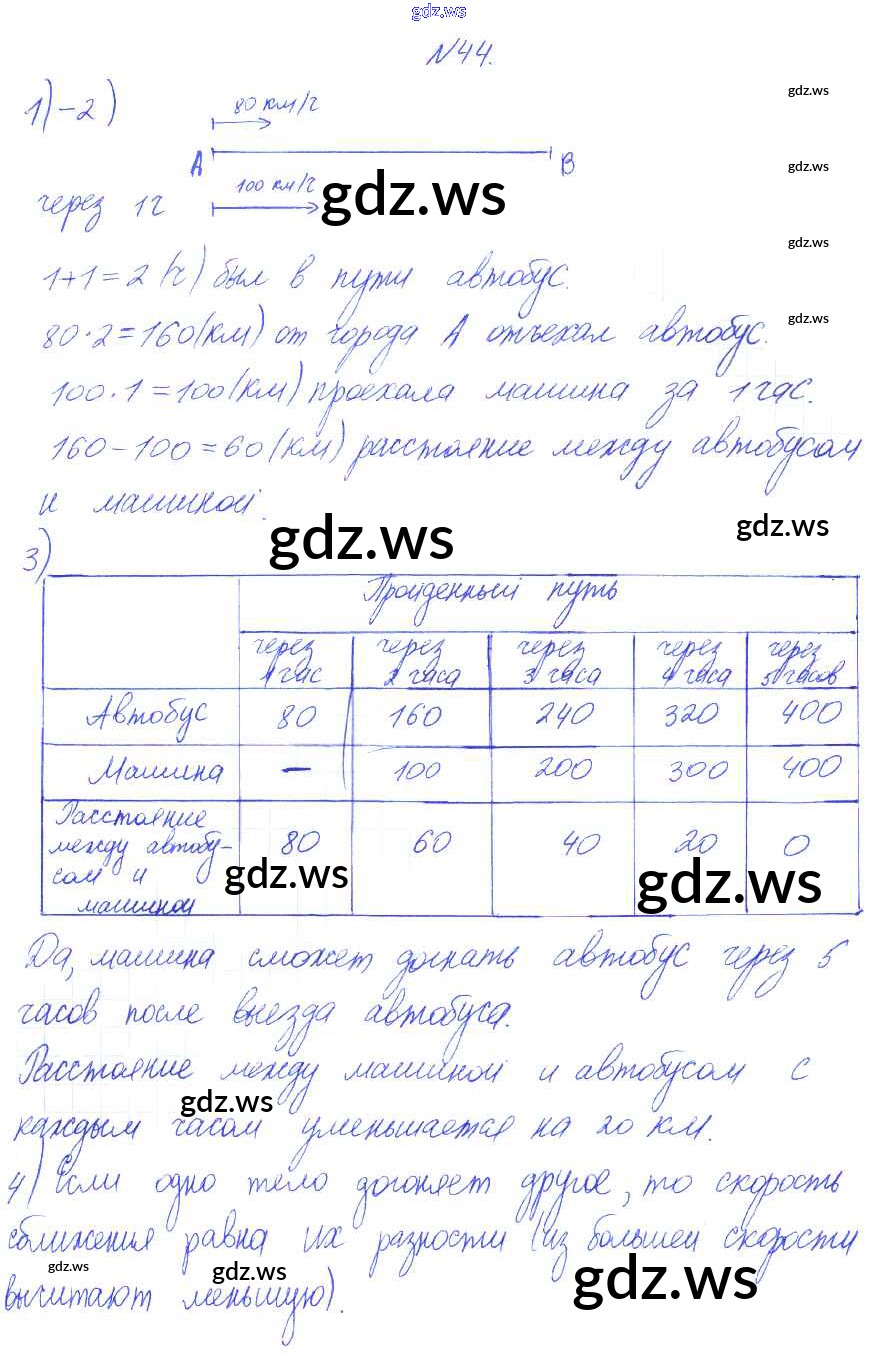 gdz.ws
№44.
1)-2)
80 км/ч
gdz.ws
A B
gdz.ws
через 1ч 100 км/ч gdz.ws
1+1=2(ч) был в пути автобус.
gdz.ws
80·2=160(км) от города А отъехал автобус.
gdz.ws
100·1=100(км) проехала машина за 1 час.
160-100=60(км) расстояние между автобусом
и машиной.
gdz.ws
gdz.ws
3)
Пройденный путь
через 1 час через 2 часа через 3 часа через 4 часа через 5 часов
Автобус 80 160 240 320 400
Машина — 100 200 300 400
Расстояние
между автобу-
сом и
машиной
80 60 40 20 0
gdz.ws
gdz.ws
Да, машина сможет догнать автобус через 5
часов после выезда автобуса.
Расстояние между машиной и автобусом с
gdz.ws
каждым часом уменьшается на 20 км.
4) Если одно тело догоняет другое, то скорость
сближения равна их разности (из большей скорости
gdz.ws
gdz.ws
gdz.ws
вычитают меньшую).